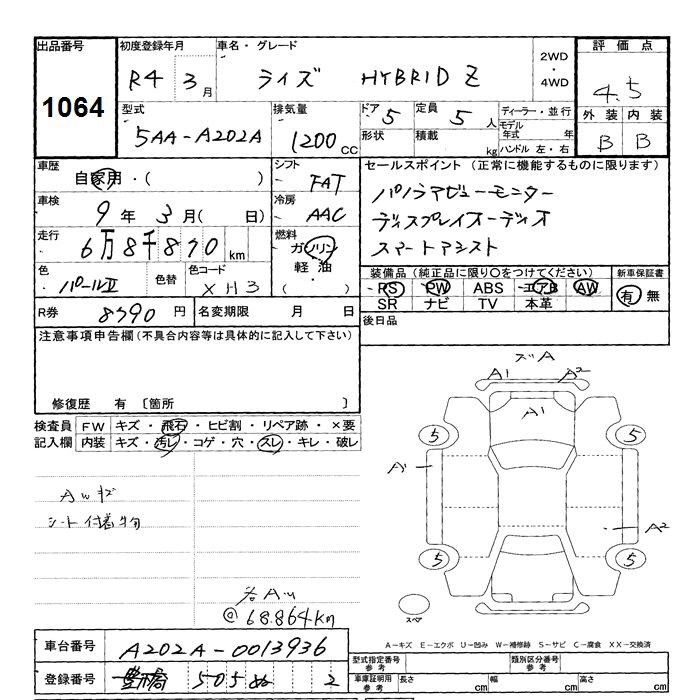 出品番号 初度登録年月 車名・グレード 2WD・4WD 評価点
1064 R4 3月 ライズ HYBRID Z 4.5
型式 排気量 ドア 定員 ディーラー・並行 外装 内装
5AA-A202A 1200cc 5 5人 モデル年式 年 B B
形状 積載 kg ハンドル 左・右
車歴 自家用・( ) シフト FAT セールスポイント (正常に機能するものに限ります)
車検 9年3月( 日) 冷房 AAC パノラマビューモニター
走行 6万8千870km 燃料 ガソリン 軽油・( ) ディスプレイオーディオ
スマートアシスト
色 パールII 色替 色コード XH3 装備品 (純正品に限り○をつけてください) 新車保証書
PS PW ABS エアB AW 有 無
SR ナビ TV 本革
R券 8790円 名変期限 月 日 後日品
注意事項申告欄(不具合内容等は具体的に記入して下さい)
修復歴 有 〔箇所 〕
検査員記入欄 FW キズ・飛石・ヒビ割・リペア跡・×要
内装 キズ・汚レ・コゲ・穴・スレ・キレ・破レ
AWキズ
シート付着物
各AW
@68.864km
ズA
A1 A2
A1
5 5
A1
A2
5 5
スペア
A-キズ E-エクボ U-凹み W-補修跡 S-サビ C-腐食 XX-交換済
車台番号 A202A-0013936
登録番号 豊橋 505 ぬ 2
型式指定番号 参考 類別区分番号 参考
車庫証明用 参考 長さ cm 幅 cm 高さ cm